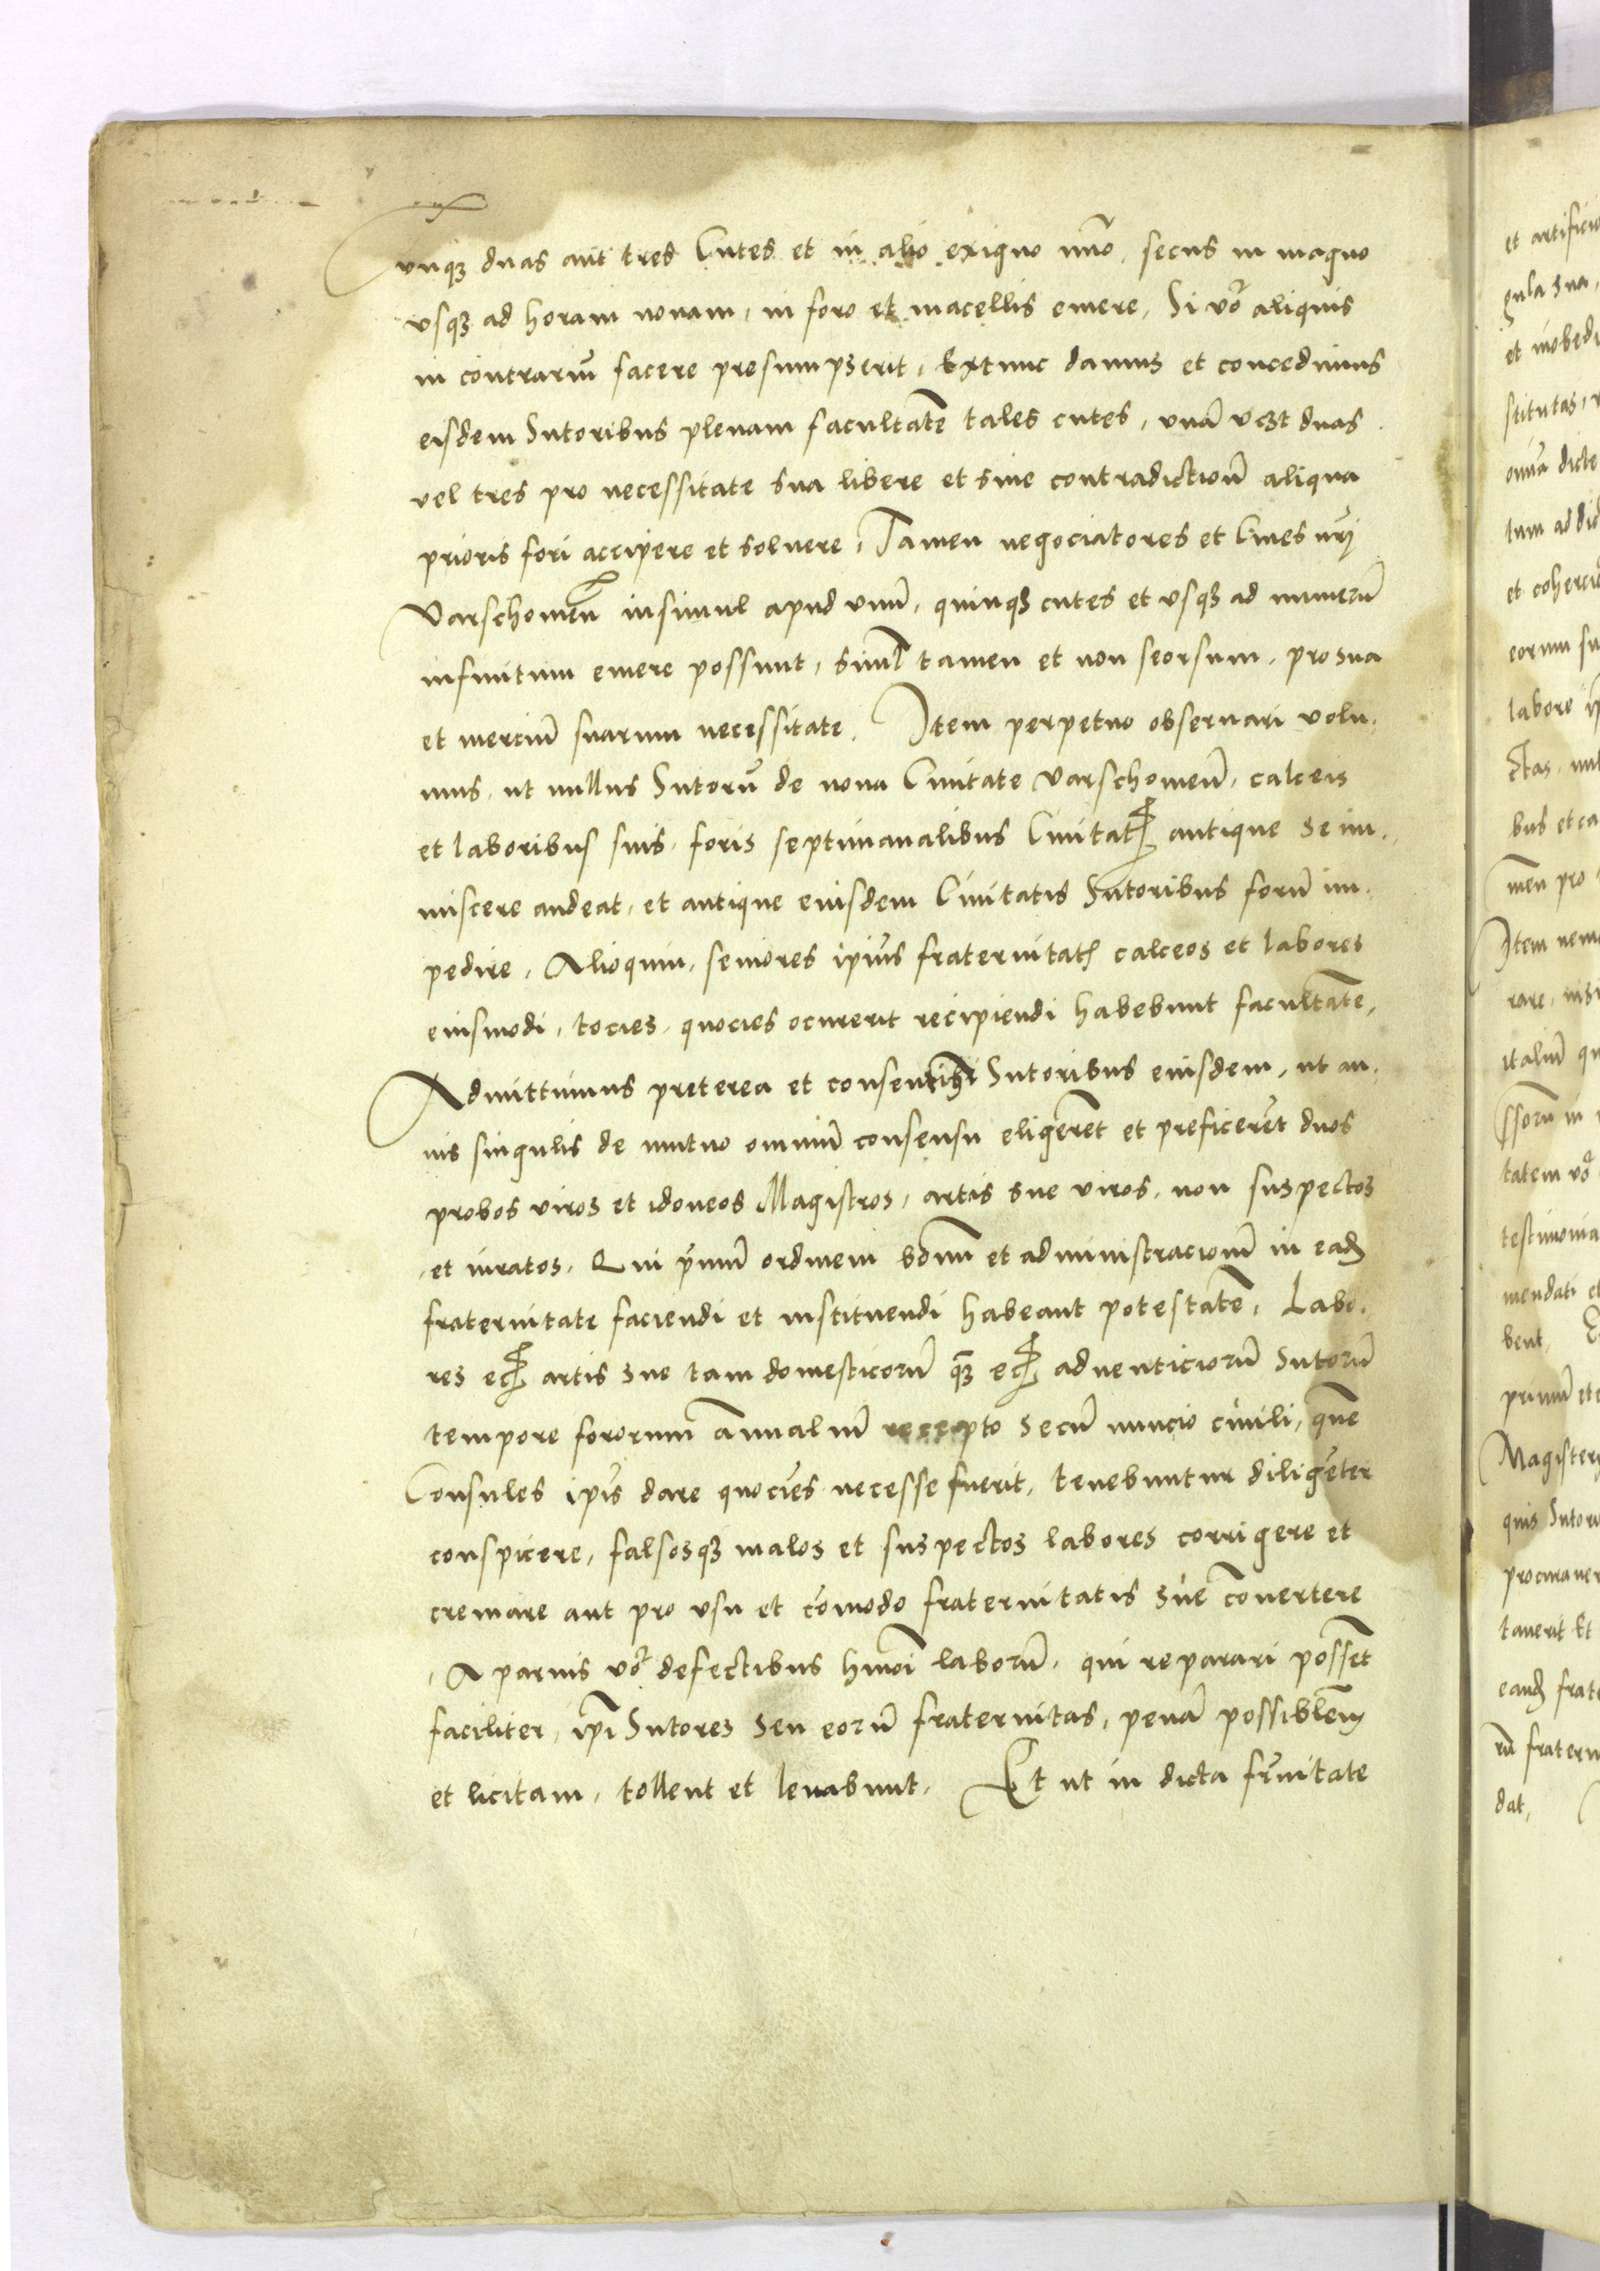 cunq3 duas aut tres Cutes et in alio exiguo nūō, secus in magno
vsq3 ad horam nonam, in foro et macellis emere, Si vō aliquis
in contrariū facere presumpserit, Extunc damus et concedimus
eisdem Sutoribus plenam facultatē tales cutes, vnā vczt duas
vel tres pro necessitate sua libere et sine contradictionē aliqua
prioris fori accipere et soluere, Tamen negociatores et Ciues nri
Varschouien insimul apud vnū, quinq3 cutes et vsq3 ad numerū
infinitum emere possunt, simul tamen et non seorsum, pro sua
et merciū suarum necessitate. Item perpetuo obseruari volu-
mus, ut nullus Sutorū de noua Ciuitate Varschouien, calceis
et laboribus suis, foris septimanalibus Ciuitatis antique se im-
miscere audeat, et antique eiusdem Ciuitatis Sutoribus forū im-
pedire, Alioquin, seniores ipius fraternitatis calceos et labores
eiusmodi, tocies, quocies ocurerit recipiendi habebunt facultatē,
Admittimus preterea et consentim Sutoribus eiusdem, ut an-
nis singulis de mutuo omniū consensu eligerēt et preficerēt duos
probos viros et idoneos Magistros, artis sue viros, non suspectos
et iuratos, Qui primū ordinem bonū et administracionē in eadē
fraternitate faciendi et instituendi habeant potestatē, Labo-
res ec artis sue tam domesticorū q3 ec aduenticiorū sutorū
tempore fororum Annaliū recepto secū nuncio ciuili, quē
Consules ipis dare quocies necesse fuerit, tenebuntur diligēter
conspicere, falsosq3 malos et suspectos labores corrigere et
cremare aut pro vsu et comodo fraternitatis sue conuertere
A paruis vō defectibus hmoi laborū, qui reparari possēt
faciliter, ipi Sutores seu eorū fraternitas, penā possiblem
et licitam, tollent et leuabunt, Et ut in dicta frnitate
et artificio
gula sua,
et inobedi
stitutas,
omia dicte
tum ad dic
et coherci
eorum su
labore
ctas, nul
bus et ca
men pro
Item nemo
rare, nisi
italiū qu
ssorū in
tatem vō
testimonia
mendati et
bent,
primū et
Magister
quis Sutor
procurauer
tauerit Et
eandē frate
rū fratern
dat,